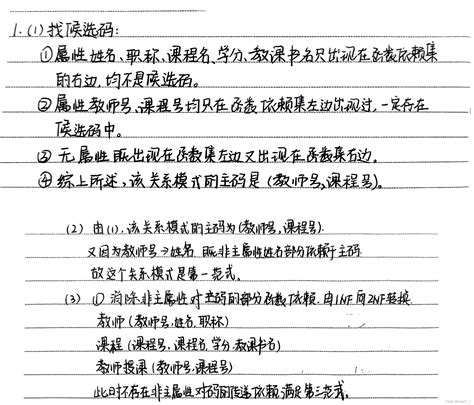 1.(1)找候选码:
①属性姓名、职称、课程名、学分、教课书名只出现在函数依赖集
的右边,均不是候选码。
②属性教师号、课程号均只在函数依赖集左边出现过,一定存在
候选码中。
③无属性既出现在函数集左边又出现在函数集右边。
④综上所述,该关系模式的主码是(教师号,课程号)。
(2)由(1),该关系模式的主码为(教师号,课程号).
又因为教师号→姓名 既非主属性姓名部分依赖于主码
故这个关系模式是第一范式。
(3)①消除非主属性对主码的部分函数依赖.由1NF向2NF转换
教师(教师号,姓名,职称)
课程(课程号,课程名,学分,教课书名)
教师授课(教师号,课程号)
此时不存在非主属性对码的传递依赖满足第三范式.